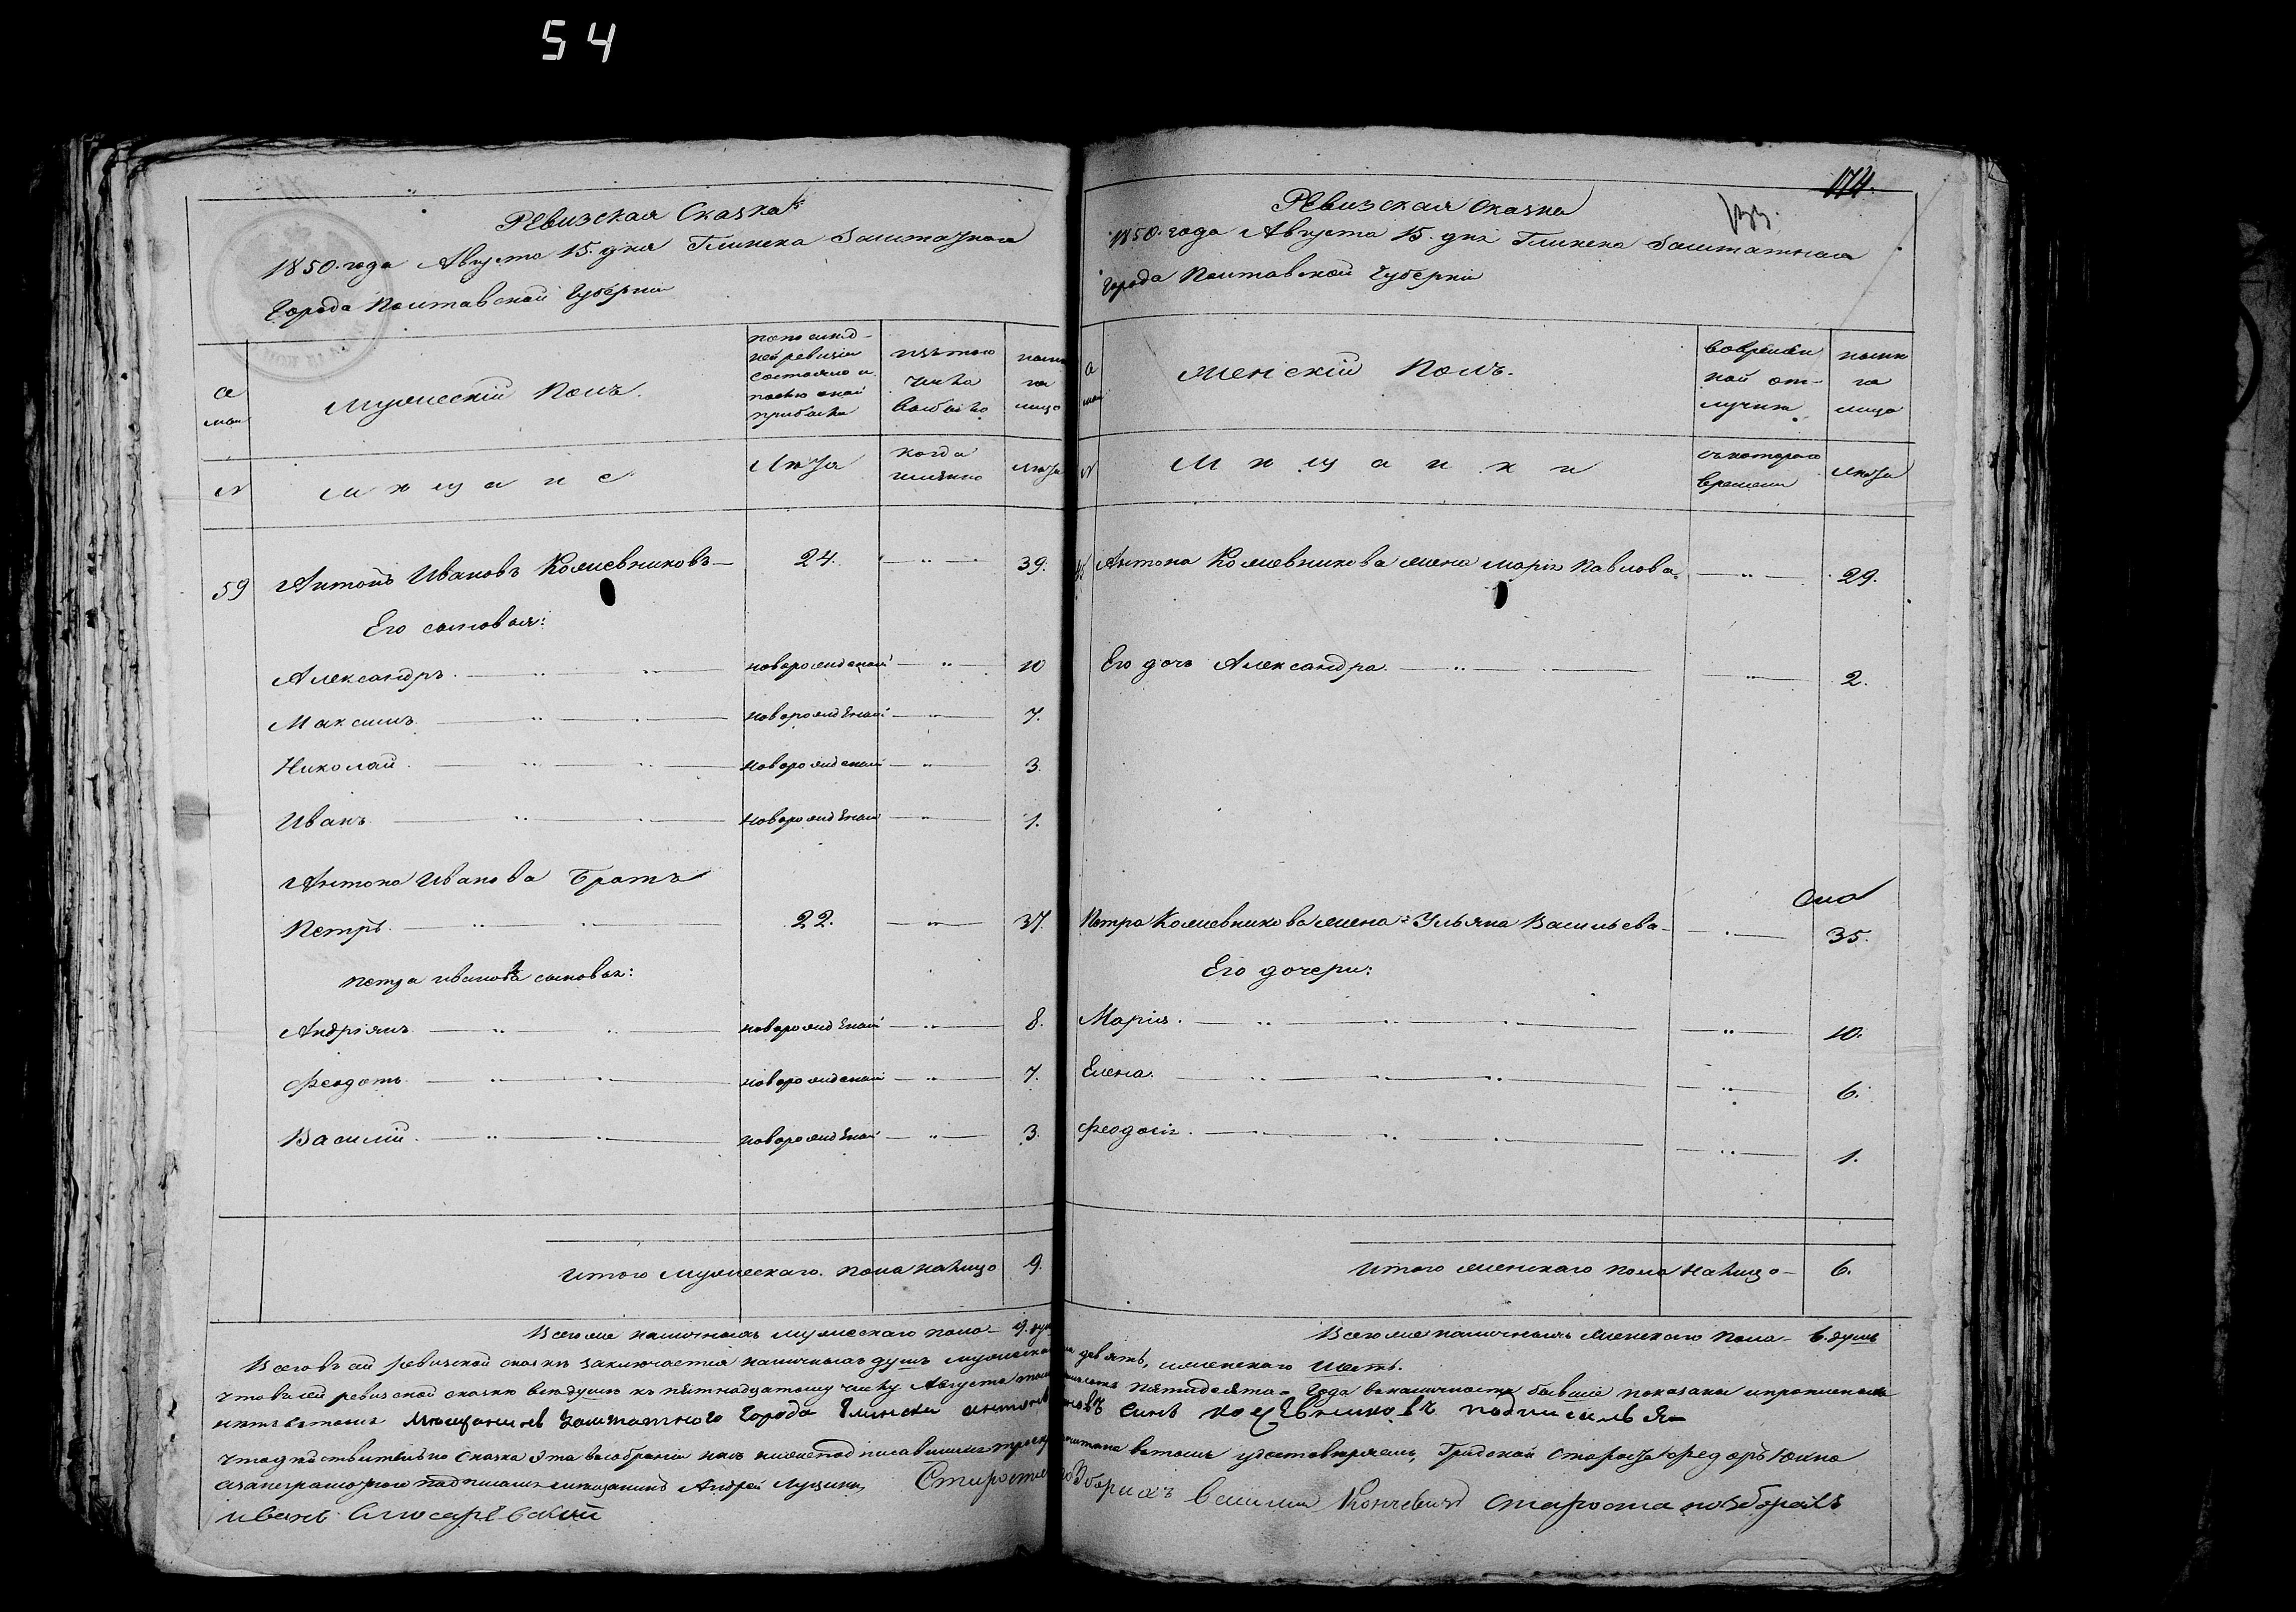 54
Ревизская Сказка
1850. года Августа 15. дня Глинска Заштатнаго
Города Полтавской Губернии
Семьи
Мужескій Полъ.
По послѣд-
ней ревизіи
состояло и
послѣ оной
прибыло
изъ того
числа
выбыло
ныне
на
лицо
№
Мѣщане
Лѣта
когда
именно
Лѣта
59 Антонъ Ивановъ Кожевниковъ 24. 39.
Его сыновья:
Александръ новорожденый 10
Максимъ новорожденый 7.
Николай новорожденый 3.
Иванъ новорожденый 1.
Антона Иванова Братъ
Петръ 22. 37.
Петра Иванова сыновья:
Андріянъ новорожденый 8.
Феодотъ новорожденый 7.
Василій новорожденый 3.
Итого мужескаго пола налицо 9.
Всего же наличныхъ мужескаго пола 9. душ
174.
Ревизская Сказка
1850. года Августа 15. дня Глинска Заштатнаго
Города Полтавской Губерніи
Женскій Полъ.
Во времен
ной от-
лучке
ныне
на
лицо
№
Мѣщанки
съ котораго
времени
Лѣта
Антона Кожевникова жена Марія Павлова 29.
Его дочь Александра 2.
Петра Кожевникова жена Ульяна Васильева 35.
Его дочери:
Марія 10.
Елена 6.
Феодосія 1.
Итого женскаго пола налицо 6.
Всего же наличныхъ женскаго пола 6. душъ
Всего въ сей ревизской сказкѣ заключается наличныхъ душъ мужескаго девять, женскаго шесть.
что въ сей ревизской сказкѣ все души къ пятнадцатому числу Августа пятидесята года въ наличности бывшіе показаны
Мещанинъ Заштатного Города Глинска Антонъ Ивановъ синъ Кожевниковъ подписался
сказка эта въ собраніи въ томъ удостовѣряемъ, Градской Староста Федоръ Юхно
а за неграмотного подписалъ мещанинъ Андрей Лущикъ Староста Василій староста по зборахъ
Иванъ Слюсаревский